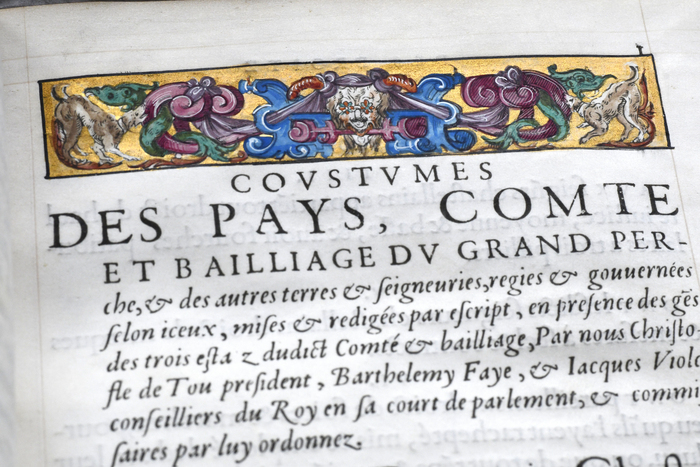 COVSTVMES
DES PAYS, COMTE
ET BAILLIAGE DV GRAND PER-
che, & des autres terres & ſeigneuries, regies & gouuernées
ſelon iceux, miſes & redigées par eſcript, en preſence des gẽs
des trois eſta z dudict Comté & bailliage, Par nous Chriſto
fle de Tou preſident, Barthelemy Faye, & Iacques Viole
conſeilliers du Roy en ſa court de parlement, & commiſ
ſaires par luy ordonnez.